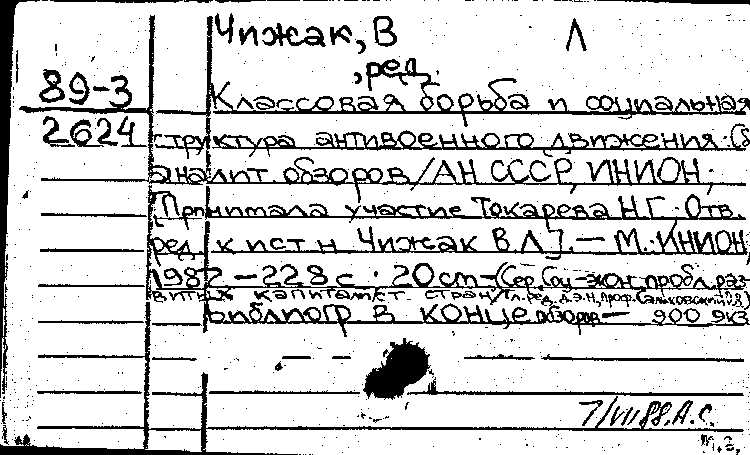 Чижак, В Л
, ред.
89-3
Классовая борьба и социальная
2624
структура антивоенного движения: Сб
аналит обзоров / АН СССР, ИНИОН;
[Принимала участие Токарева Н.Г; Отв.
ред. к ист н Чижак В.Л]. — М.: ИНИОН,
1987 — 228 с; 20 см — (Сер. Соц-экон. пробл. раз-
витых капиталист. стран / Гл. ред. д.э.н, проф.
Библиогр в конце обзоров — 900 экз
7/VII 88. А.С.